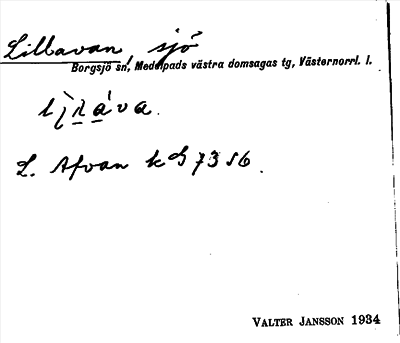 Lillavan, sjö
Borgsjö sn, Medelpads västra domsagas tg, Västernorrl. l.
L. Afvan kS 7356.
VALTER JANSSON 1934